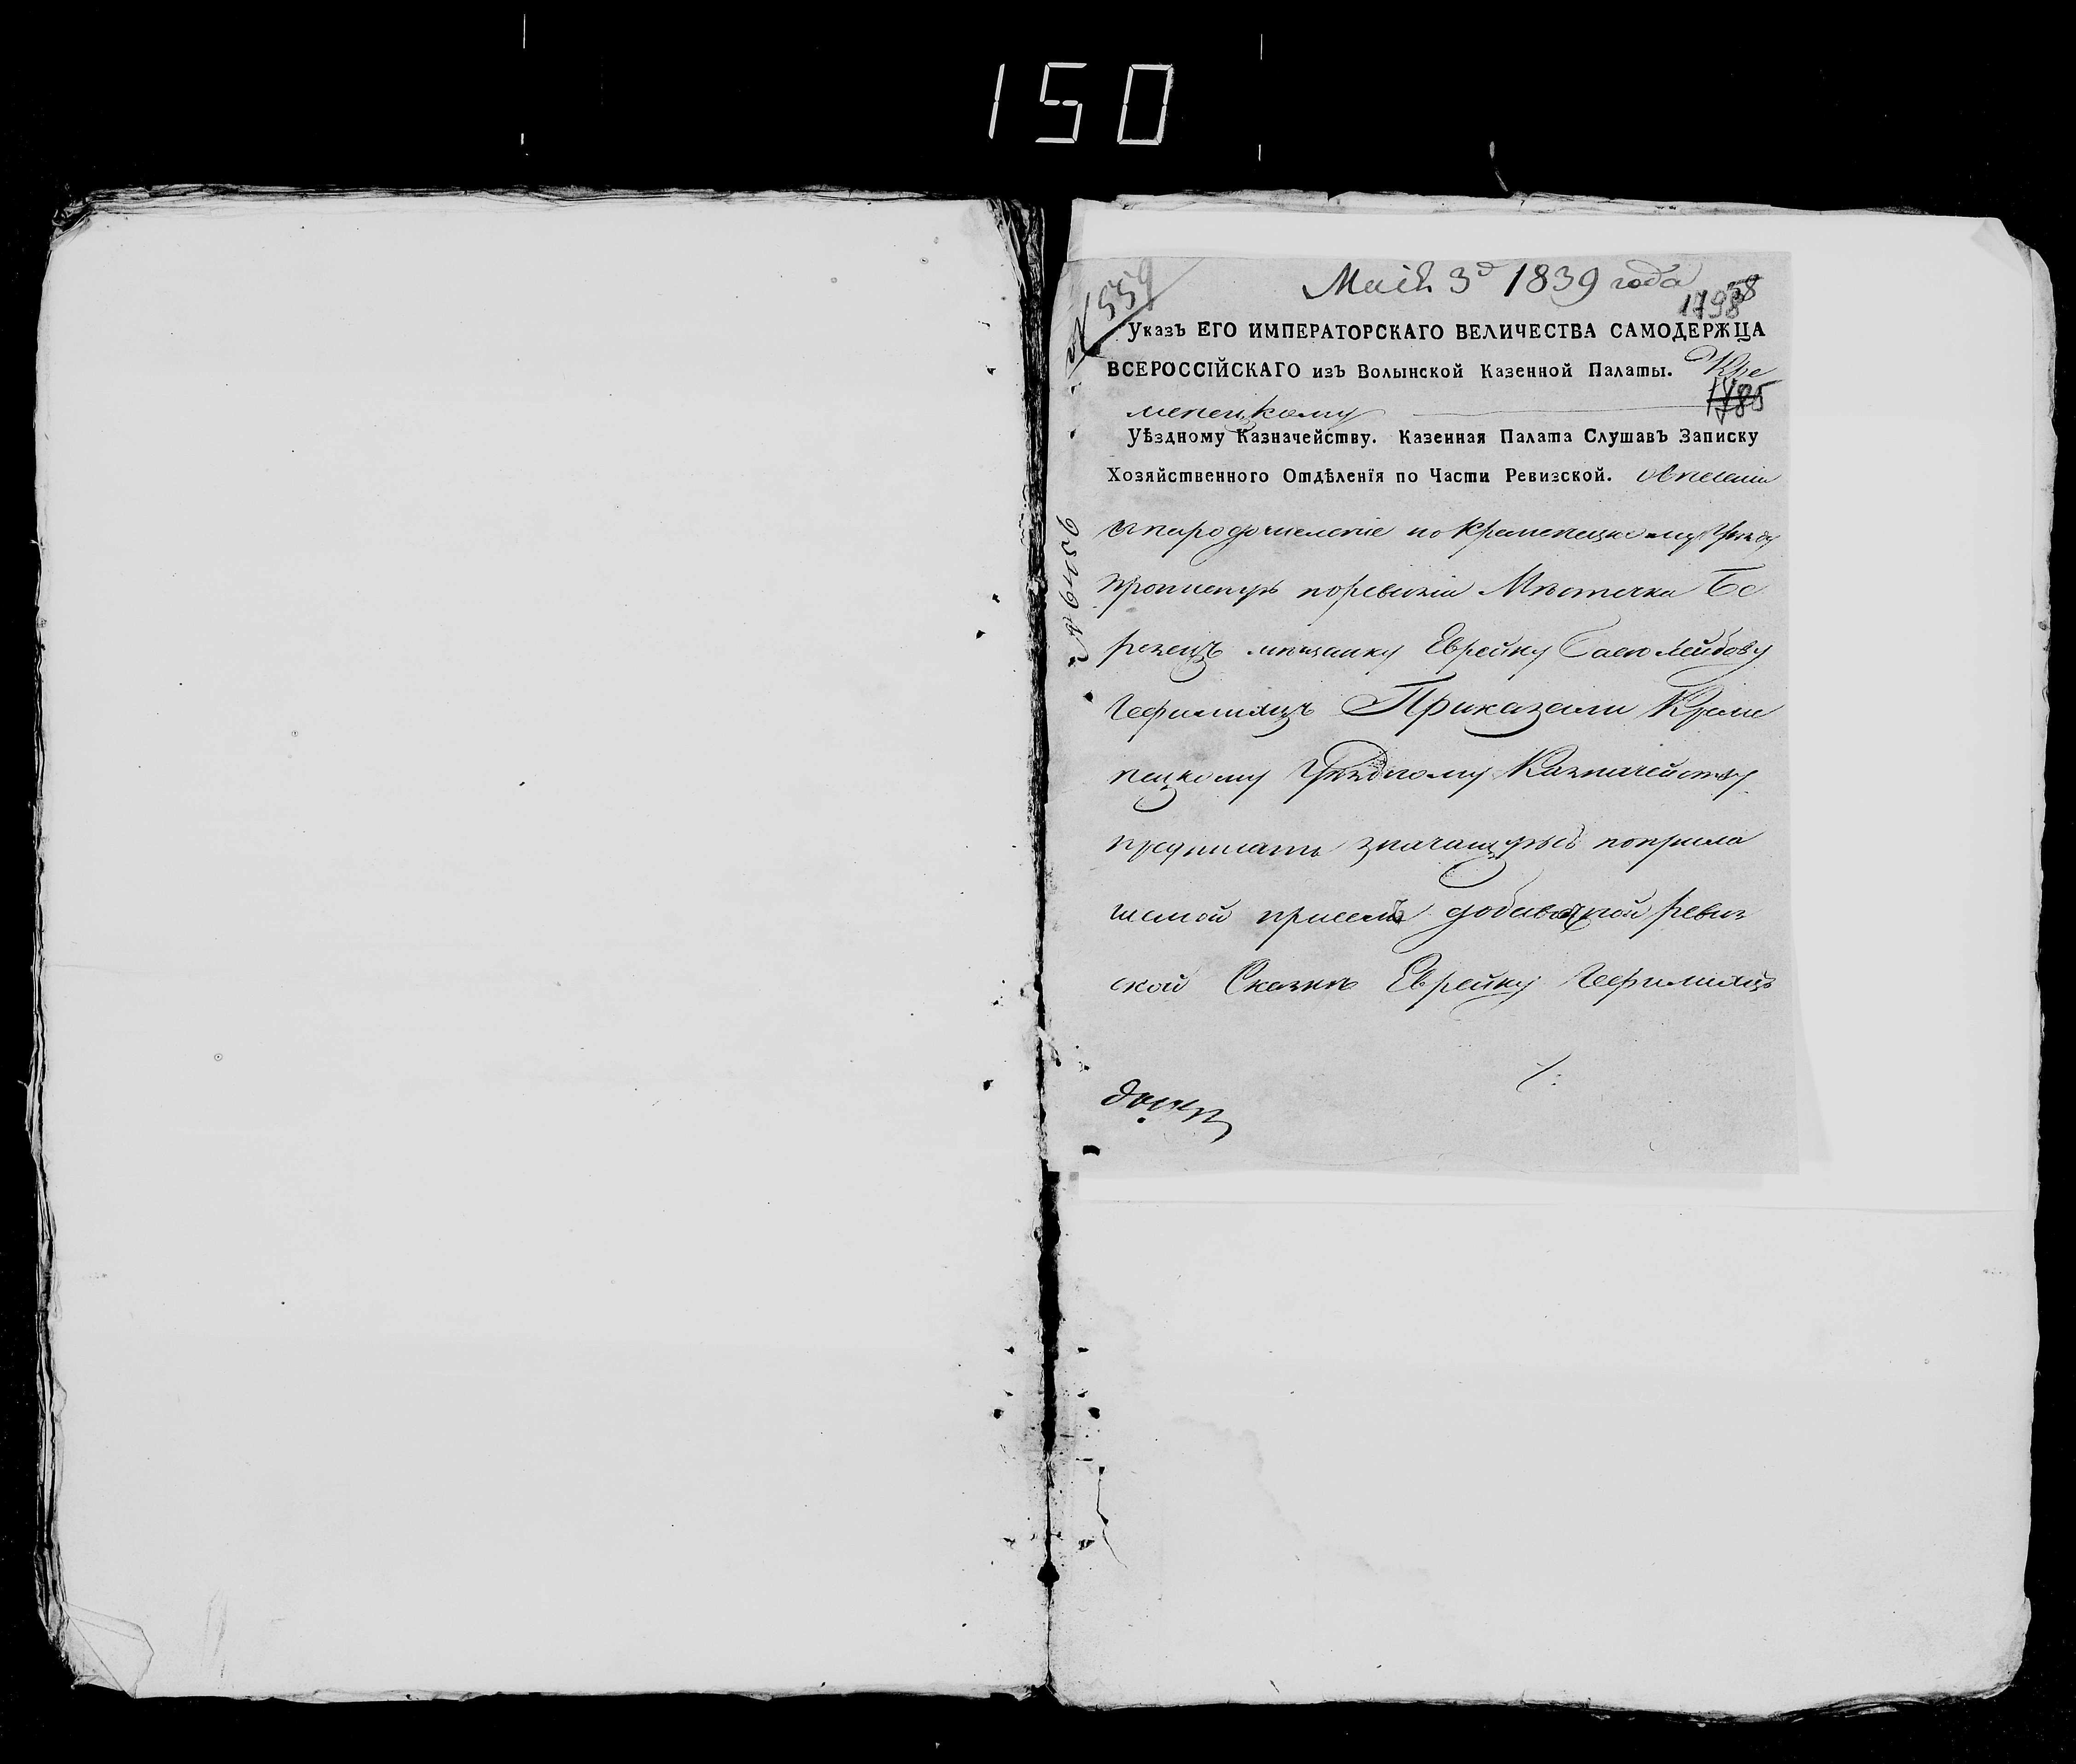 150
Маія 3д 1839 года
№ 559
58
1798
Указъ ЕГО ИМПЕРАТОРСКАГО ВЕЛИЧЕСТВА САМОДЕРЖЦА
ВСЕРОССІЙСКАГО изъ Волынской Казенной Палаты. Кре
1785
менецкому
Уѣздному Казначейству. Казенная Палата Слушавъ Записку
Хозяйственного Отдѣленїя по Части Ревизской. О внесеніи
въ народочисленіе по Кременецкому Уѣзду
поревизіи Мѣстечка Бе
резецъ мѣщанку Еврейку Басю Лейбову
Приказали Креме
нецкому Уѣздному Казначейству
предписать значащуюсь поприла
гаемой присемъ добавочной ревиз
ской Сказкѣ Еврейку